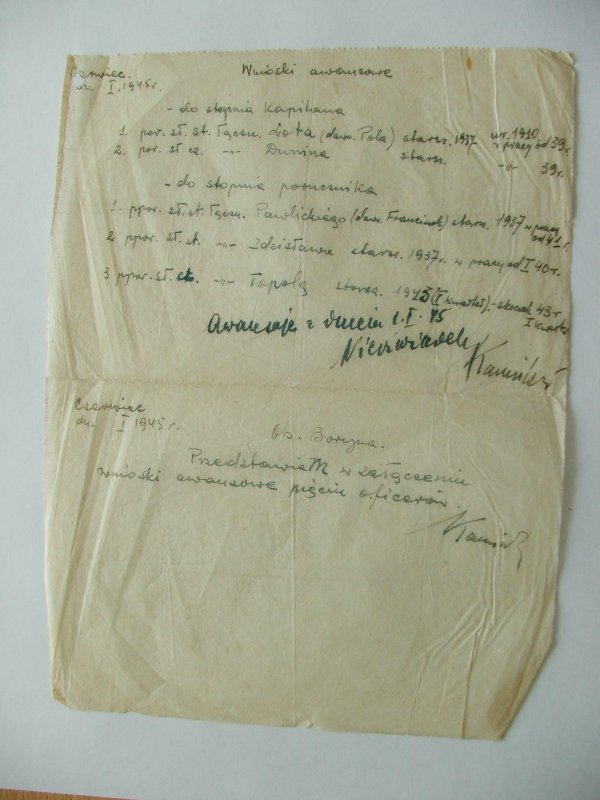 Czerwiec.
dn. I.1945r.
Wnioski awansowe
- do stopnia Kapitana
1. por. sł. st. łączn. Lota (daw. Pola) starsz. 1937 ur. 1910 w pracy od 39r.
2. por. sł cz. -„- Dunina starsz. -„- 39r.
- do stopnia porucznika
1. ppor. sł. st. łączn. Pawlickiego (daw. Franciszek) starsz. 1937 w pracy od 41r.
2 ppor. sł. st. -„- Zdzisława starsz. 1937r. w pracy od I 40r.
3 ppor. sł. -„- Topolę starsz. 1943 (I kwartał) - 43r I kwartał
Awansuję z dniem 1.I.45
Niedźwiadek
Kamiński
Czerwiec
dn. I 1945r.
Ob. Boryna.
Przedstawiam w załączeniu
wnioski awansowe pięciu oficerów.